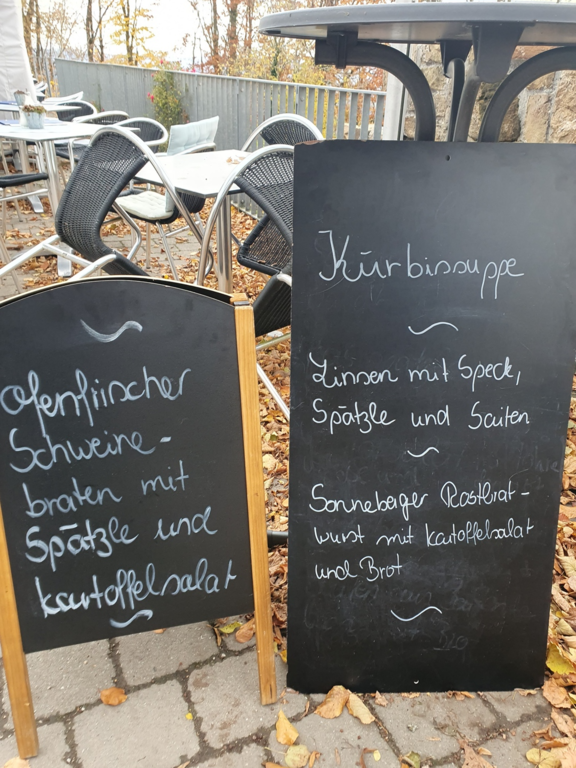 ofenfrischer
Schweine-
braten mit
Spätzle und
Kartoffelsalat
Kürbissuppe
Linsen mit Speck,
Spätzle und Saiten
Sonneberger Rostbrat-
wurst mit Kartoffelsalat
und Brot